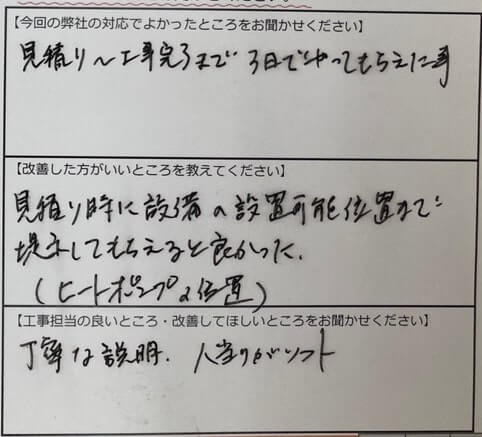 【今回の弊社の対応でよかったところをお聞かせください】
見積り〜工事完了まで3日でやってもらえた事
【改善した方がいいところを教えてください】
見積り時に設備の設置可能位置まで
提示してもらえると良かった.
(ヒートポンプの位置)
【工事担当の良いところ・改善してほしいところをお聞かせください】
丁寧な説明. 人当りがソフト